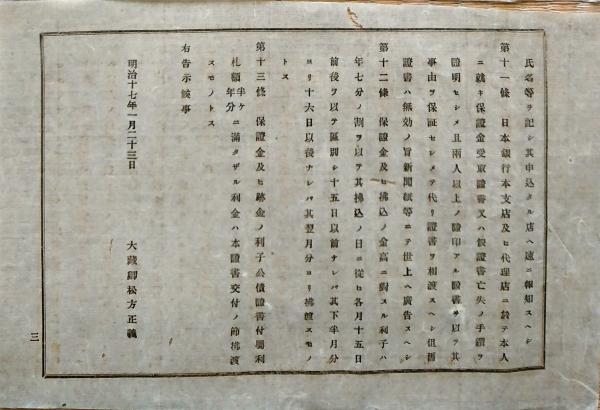 氏名等ヲ記シ其申込タル店ヘ速ニ報知スヘシ
第十一條 日本銀行本支店及ヒ代理店ニ於テ本人
ニ就キ保證金受取證書又ハ假證書亡失ノ手續ヲ
證明セシメ且兩人以上ノ證印アル證書ヲ以テ其
事由ヲ保証セシメテ代リ證書ヲ相渡スヘシ但舊
證書ハ無効ノ旨新聞紙等ニテ世上ヘ廣告スヘシ
第十二條 保證金及ヒ拂込ノ金高ニ對スル利子ハ
年七分ノ割ヲ以テ其拂込ノ日ニ從ヒ各月十五日
前後ヲ以テ區別シ十五日以前ナレハ其下半月分
ヨリ十六日以後ナレハ其翌月分ヨリ拂渡スモノ
トス
第十三條 保證金及ヒ跡金ノ利子公債證書付屬利
札額半ケ年分ニ滿タザル利金ハ本證書交付ノ節拂渡
スモノトス
右告示候事
明治十七年一月二十三日
大藏卿松方正義
三